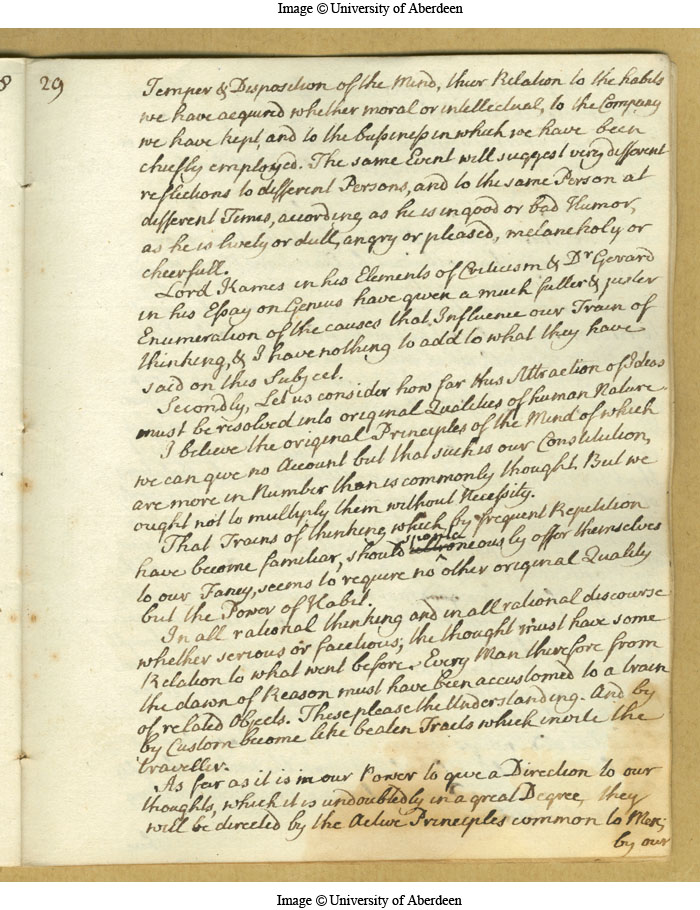 Image © University of Aberdeen
8
29
Temper & Disposition of the Mind, their Relation to the habits
we have acquired whether moral or intellectual, to the Company
we have kept, and to the bussiness in which we have been
chiefly employed. The same Event will suggest very different
reflections to different Persons, and to the same Person at
different Times, according as he is in good or bad Humor,
as he is lively or dull, angry or pleased, melancholy or
cheerfull.
Lord Kames in his Elements of Criticism & Dr Gerard
in his Essay on Genius have given a much fuller & juster
Enumeration of the causes that Influence our Train of
thinking, & I have nothing to add to what they have
said on this Subject.
Secondly, Let us consider how far this Attraction of Ideas
must be resolved into original Qualities of human Nature.
I believe the original Principles of the Mind of which
we can give no Account but that such is our Constitution,
are more in Number than is commonly thought. But we
ought not to multiply them without Necessity.
That Trains of thinking which by frequent Repetition
have become familiar, should spontaneously offer themselves
to our Fancy, seems to require no other original Quality
but the Power of Habit.
In all rational thinking and in all rational discourse
whether serious or facetious, the thought must have some
Relation to what went before. Every Man therefore from
the dawn of Reason must have been accustomed to a train
of related Objects. These please the Understanding. And by
by Custom become like beaten Tracts which invite the
traveller.
As far as it is in our Power to give a Direction to our
thoughts, which it is undoubtedly in a great Degree, they
will be directed by the Active Principles common to Men;
by our
Image © University of Aberdeen